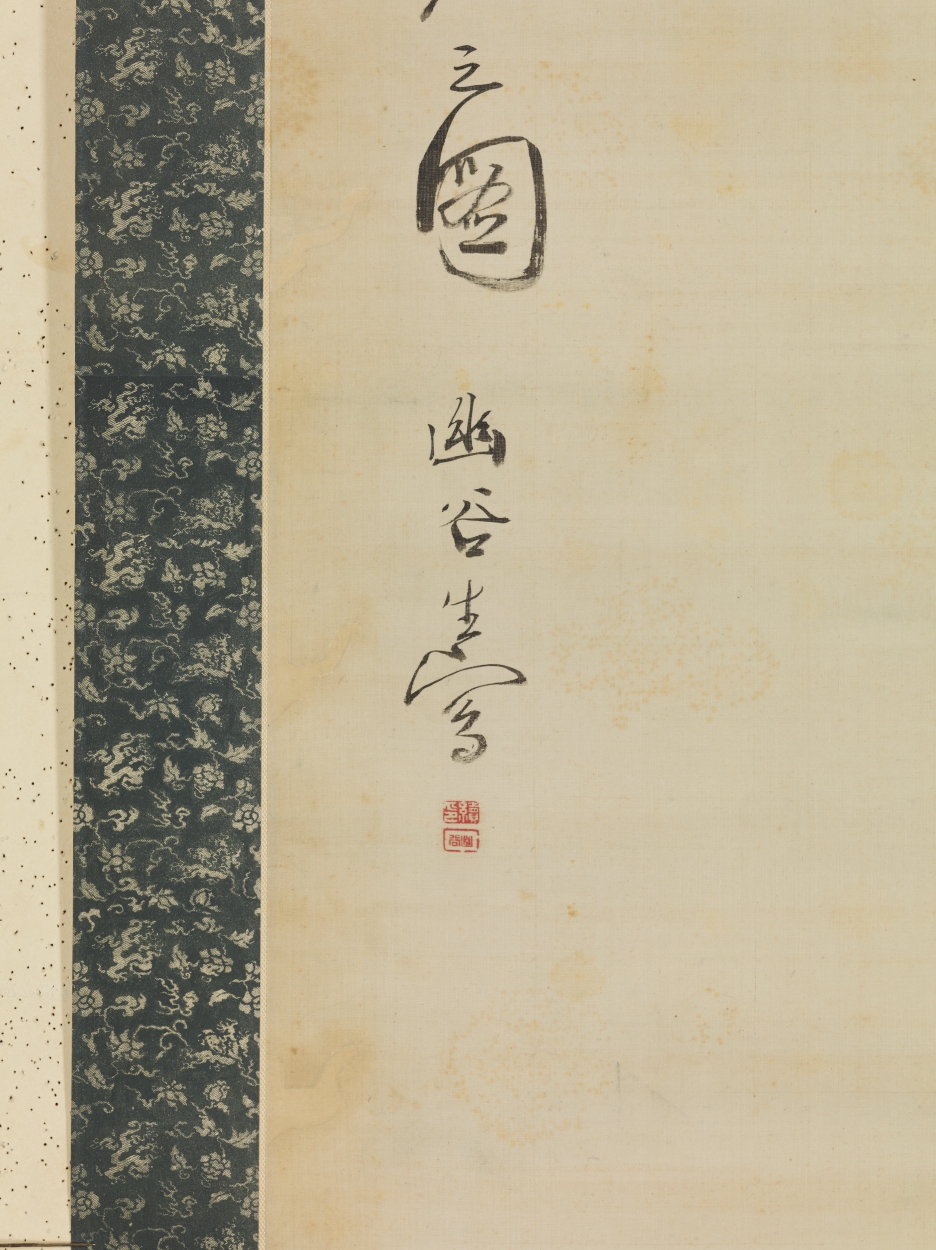 之圖
幽谷生寫